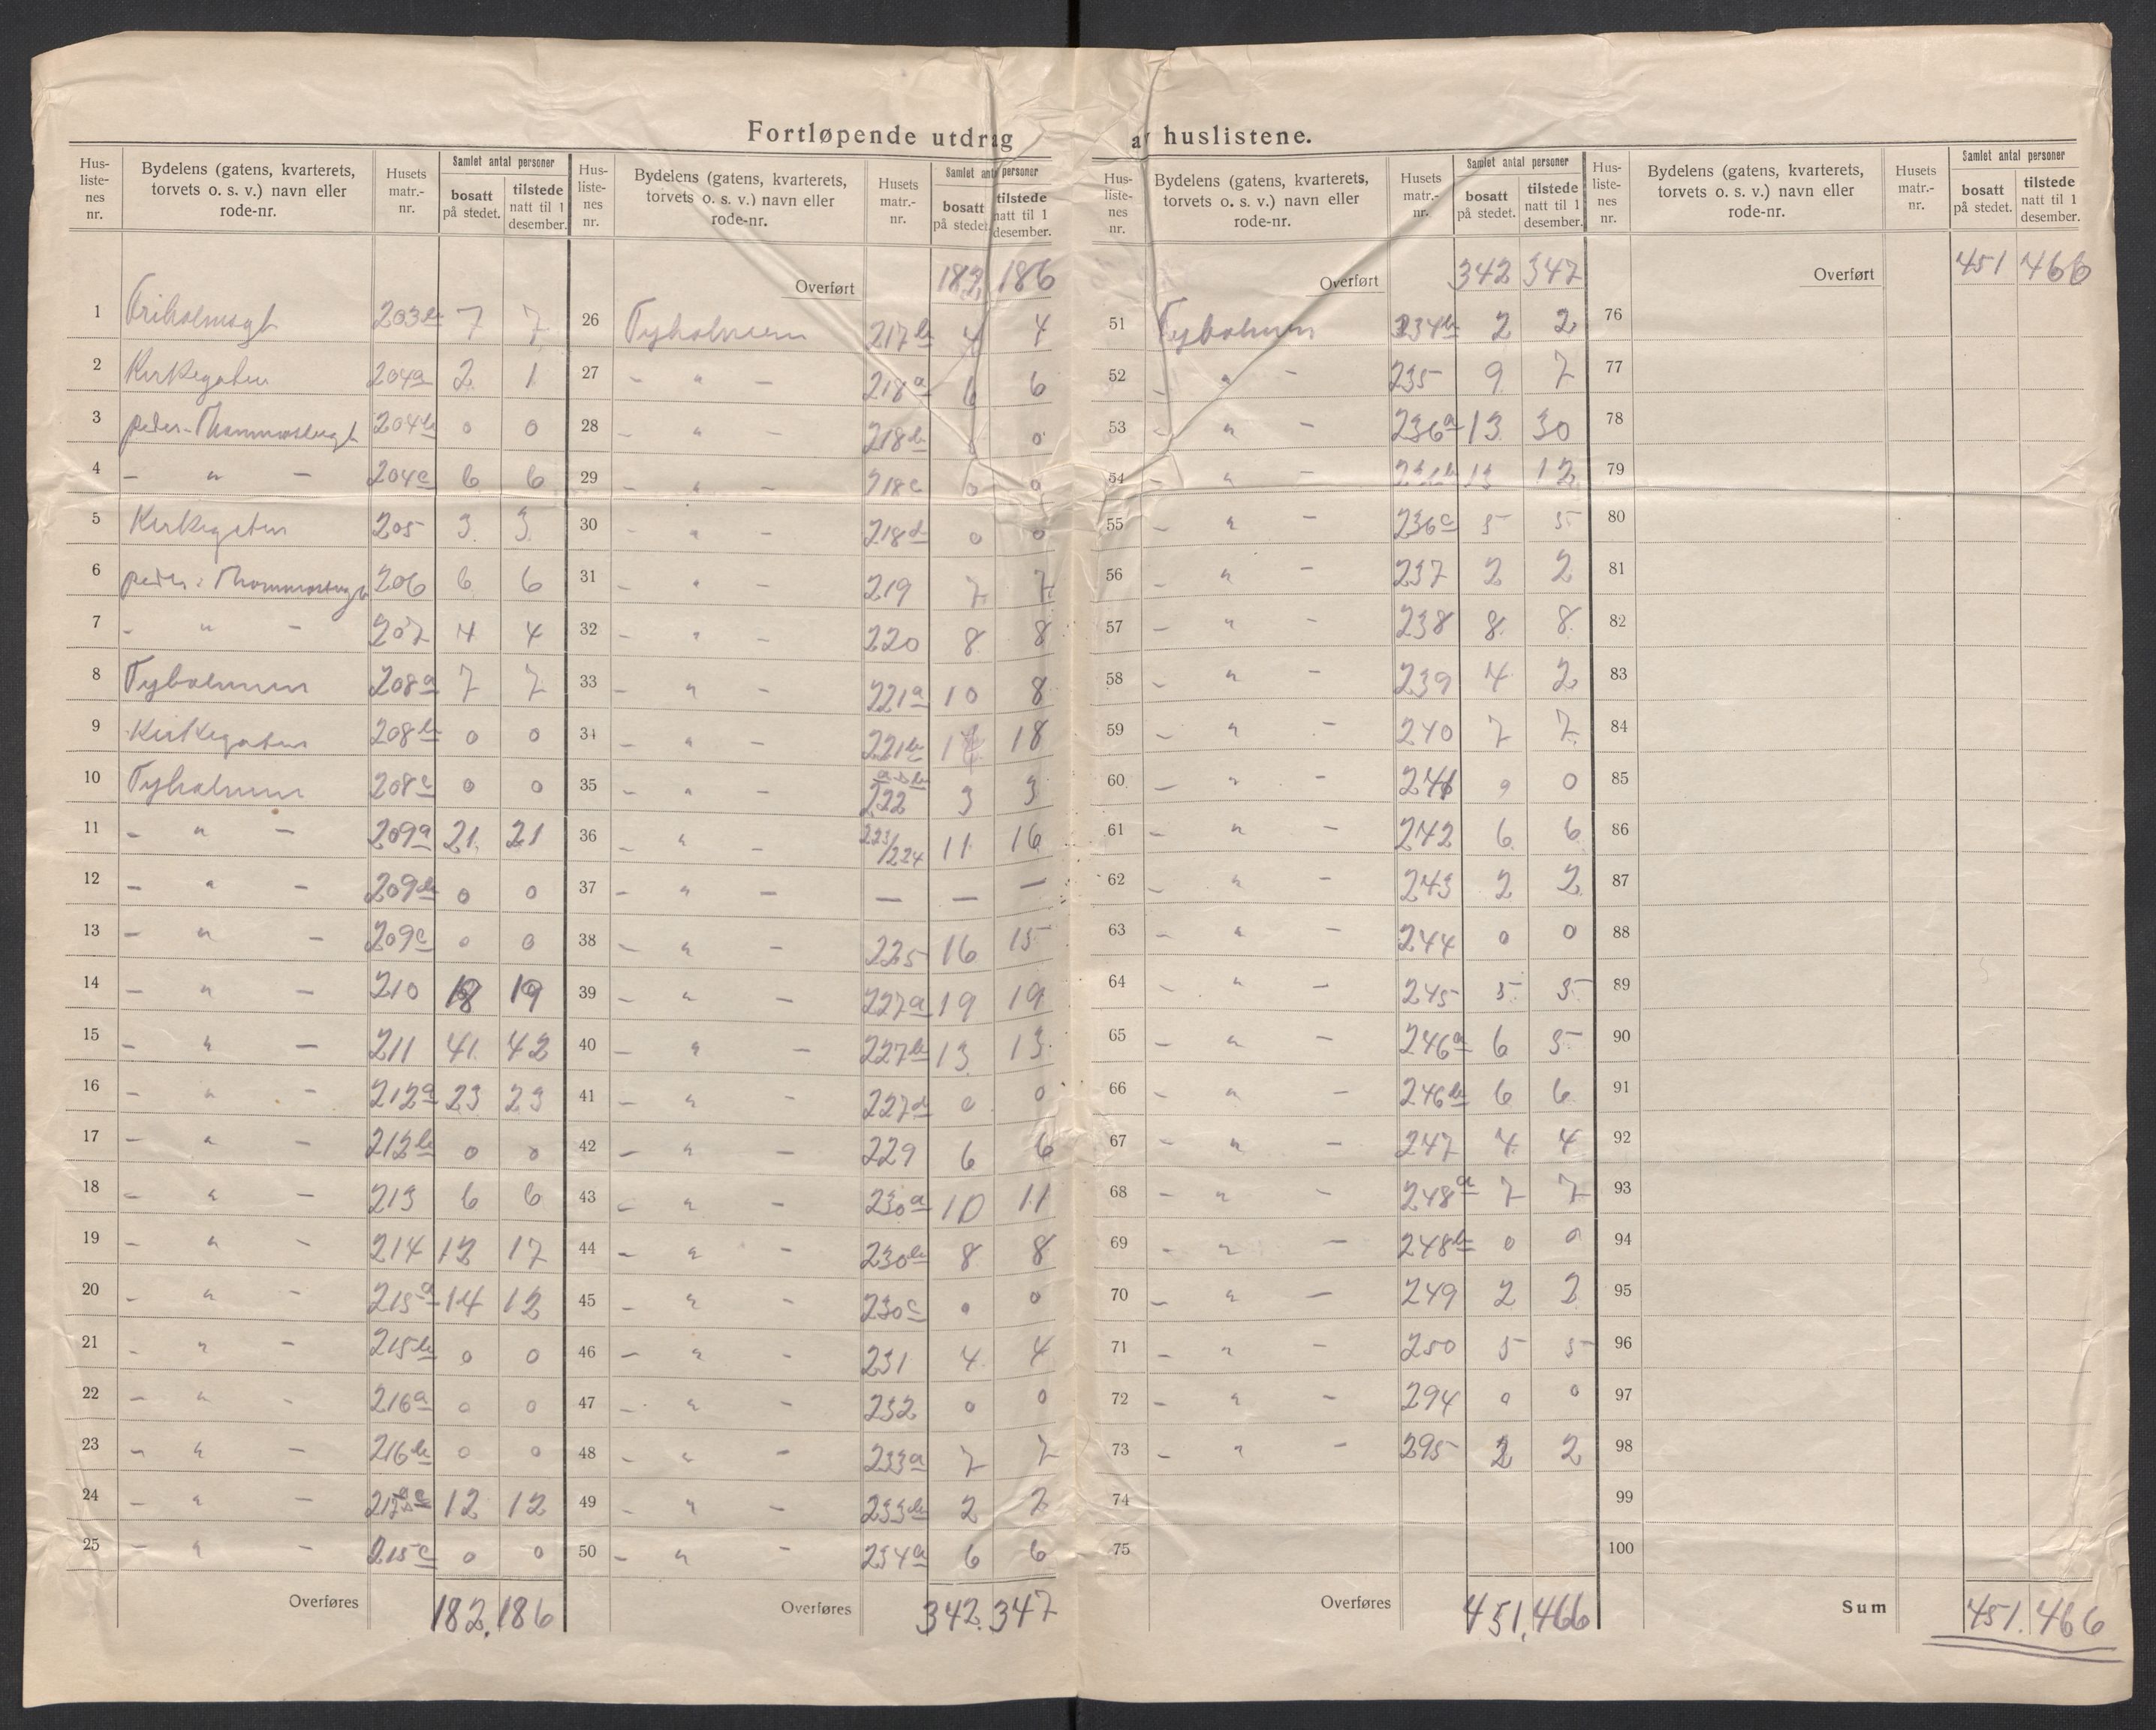 Fortløpende utdrag av huslistene.
Hus-listenes nr. | Bydelens (gatens, kvarterets, torvets o. s. v.) navn eller rode-nr. | Husets matr.-nr. | Samlet antal personer: bosatt på stedet. | tilstede natt til 1 desember.
1 Friholmsgt 203b 7 7
2 Kirkegaten 204a 2 1
3 peder-Thommasbugt 204b 0 0
4 - " - 204c 6 6
5 Kirkegaten 205 3 3
6 peder-Thommasbugt 206 6 6
7 - " - 207 4 4
8 Tyholmen 208a 7 7
9 Kirkegaten 208b 0 0
10 Tyholmen 208c 0 0
11 - " - 209a 21 21
12 - " - 209b 0 0
13 - " - 209c 0 0
14 - " - 210 18 19
15 - " - 211 41 42
16 - " - 212a 23 23
17 - " - 212b 0 0
18 - " - 213 6 6
19 - " - 214 12 17
20 - " - 215a 14 12
21 - " - 215b 0 0
22 - " - 216a 0 0
23 - " - 216b 0 0
24 - " - 12 12
25 - " - 215c 0 0
Overføres 182. 186
Hus-listenes nr. | Bydelens (gatens, kvarterets, torvets o. s. v.) navn eller rode-nr. | Husets matr.-nr. | Samlet antal personer: bosatt på stedet. | tilstede natt til 1 desember.
Overført 182 186
26 Tyholmen 217b 4 4
27 - " - 218a 6 6
28 - " - 218b 0
29 - " - 218c 0 0
30 - " - 218d 0 0
31 - " - 219 7 7
32 - " - 220 8 8
33 - " - 221a 10 8
34 - " - 221b 18
35 - " - a-b 222 3 3
36 - " - 223/224 11 16
37 - " - — — —
38 - " - 225 16 15
39 - " - 227a 19 19
40 - " - 227b 13 13
41 - " - 227d 0 0
42 - " - 229 6 6
43 - " - 230a 10 11
44 - " - 230b 8 8
45 - " - 230c 0 0
46 - " - 231 4 4
47 - " - 232 0 0
48 - " - 233a 7 7
49 - " - 233b 2 2
50 - " - 234a 6 6
Overføres 342. 347
Hus-listenes nr. | Bydelens (gatens, kvarterets, torvets o. s. v.) navn eller rode-nr. | Husets matr.-nr. | Samlet antal personer: bosatt på stedet. | tilstede natt til 1 desember.
Overført 342 347
51 Tyholmen 234b 2 2
52 - " - 235 9 7
53 - " - 236a 13 30
54 - " - 236b 13 12
55 - " - 236c 5 5
56 - " - 237 2 2
57 - " - 238 8 8
58 - " - 239 4 2
59 - " - 240 7 7
60 - " - 241 0 0
61 - " - 242 6 6
62 - " - 243 2 2
63 - " - 244 0 0
64 - " - 245 5 5
65 - " - 246a 6 5
66 - " - 246b 6 6
67 - " - 247 4 4
68 - " - 248a 7 7
69 - " - 248b 0 0
70 - " - 249 2 2
71 - " - 250 5 5
72 - " - 294 0 0
73 - " - 295 2 2
74
75
Overføres 451. 466
Hus-listenes nr. | Bydelens (gatens, kvarterets, torvets o. s. v.) navn eller rode-nr. | Husets matr.-nr. | Samlet antal personer: bosatt på stedet. | tilstede natt til 1 desember.
Overført 451 466
76
77
78
79
80
81
82
83
84
85
86
87
88
89
90
91
92
93
94
95
96
97
98
99
100
Sum 451. 466